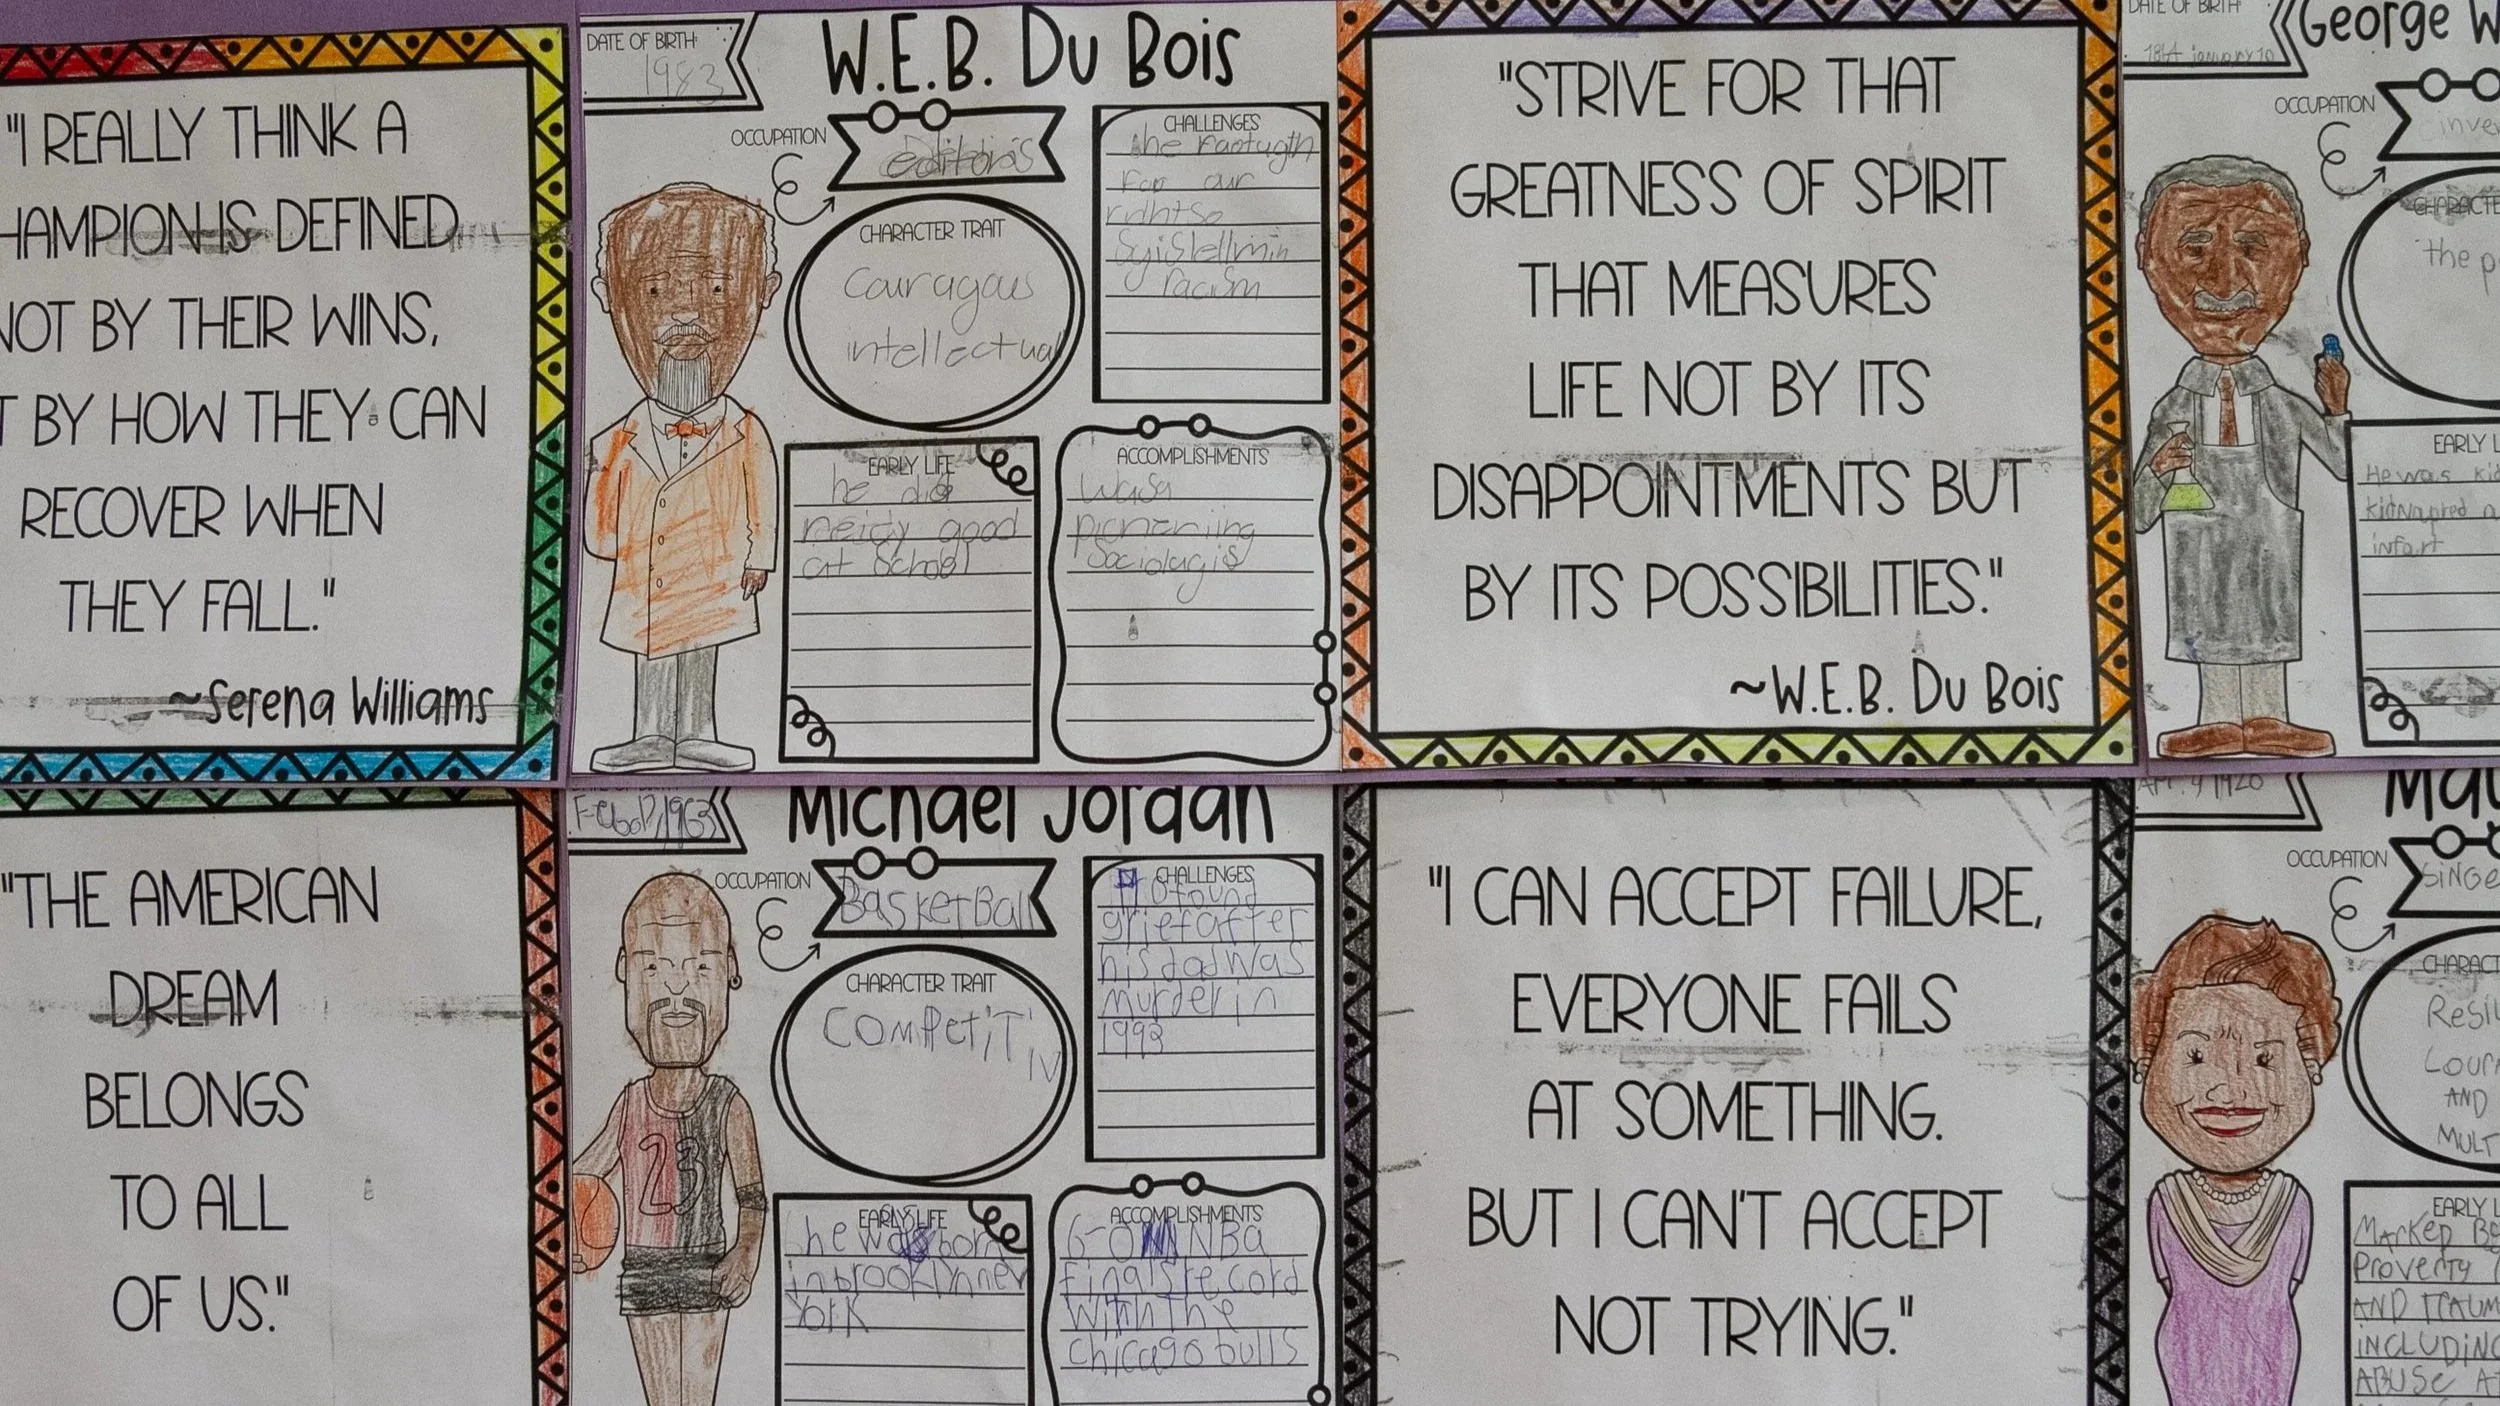 "I REALLY THINK A
HAMPION IS DEFINED
NOT BY THEIR WINS,
T BY HOW THEY CAN
RECOVER WHEN
THEY FALL."
~Serena Williams
DATE OF BIRTH:
1983
W.E.B. Du Bois
OCCUPATION
editoris
CHARACTER TRAIT
Couragous
intellectual
CHALLENGES
he
rap our
Racism
EARLY LIFE
he did
good
at School
ACCOMPLISHMENTS
wasa
Sociologis
"STRIVE FOR THAT
GREATNESS OF SPIRIT
THAT MEASURES
LIFE NOT BY ITS
DISAPPOINTMENTS BUT
BY ITS POSSIBILITIES."
~W.E.B. Du Bois
DATE OF BIRTH:
1864 january 10
George W
OCCUPATION
inve
CHARACTE
the p
EARLY L
He was kid
kidnapped a
infart
"THE AMERICAN
DREAM
BELONGS
TO ALL
OF US."
1963
Michael Jordan
OCCUPATION
BasketBall
23
CHARACTER TRAIT
COMPETiTiv
CHALLENGES
Profound
grief after
his dad was
murder in
1993
EARLY LIFE
he was born
in brooklyn new
York
ACCOMPLISHMENTS
6-0 NBa
finals record
with the
chicago bulls
"I CAN ACCEPT FAILURE,
EVERYONE FAILS
AT SOMETHING.
BUT I CAN'T ACCEPT
NOT TRYING."
Apr. 4 1928
May
OCCUPATION
SiNGe
CHARACT
Resil
Cour
AND
MULT
EARLY L
MARKED BE
Proverty
AND TRAUM
iNCLUDiNG
ABUSe AT